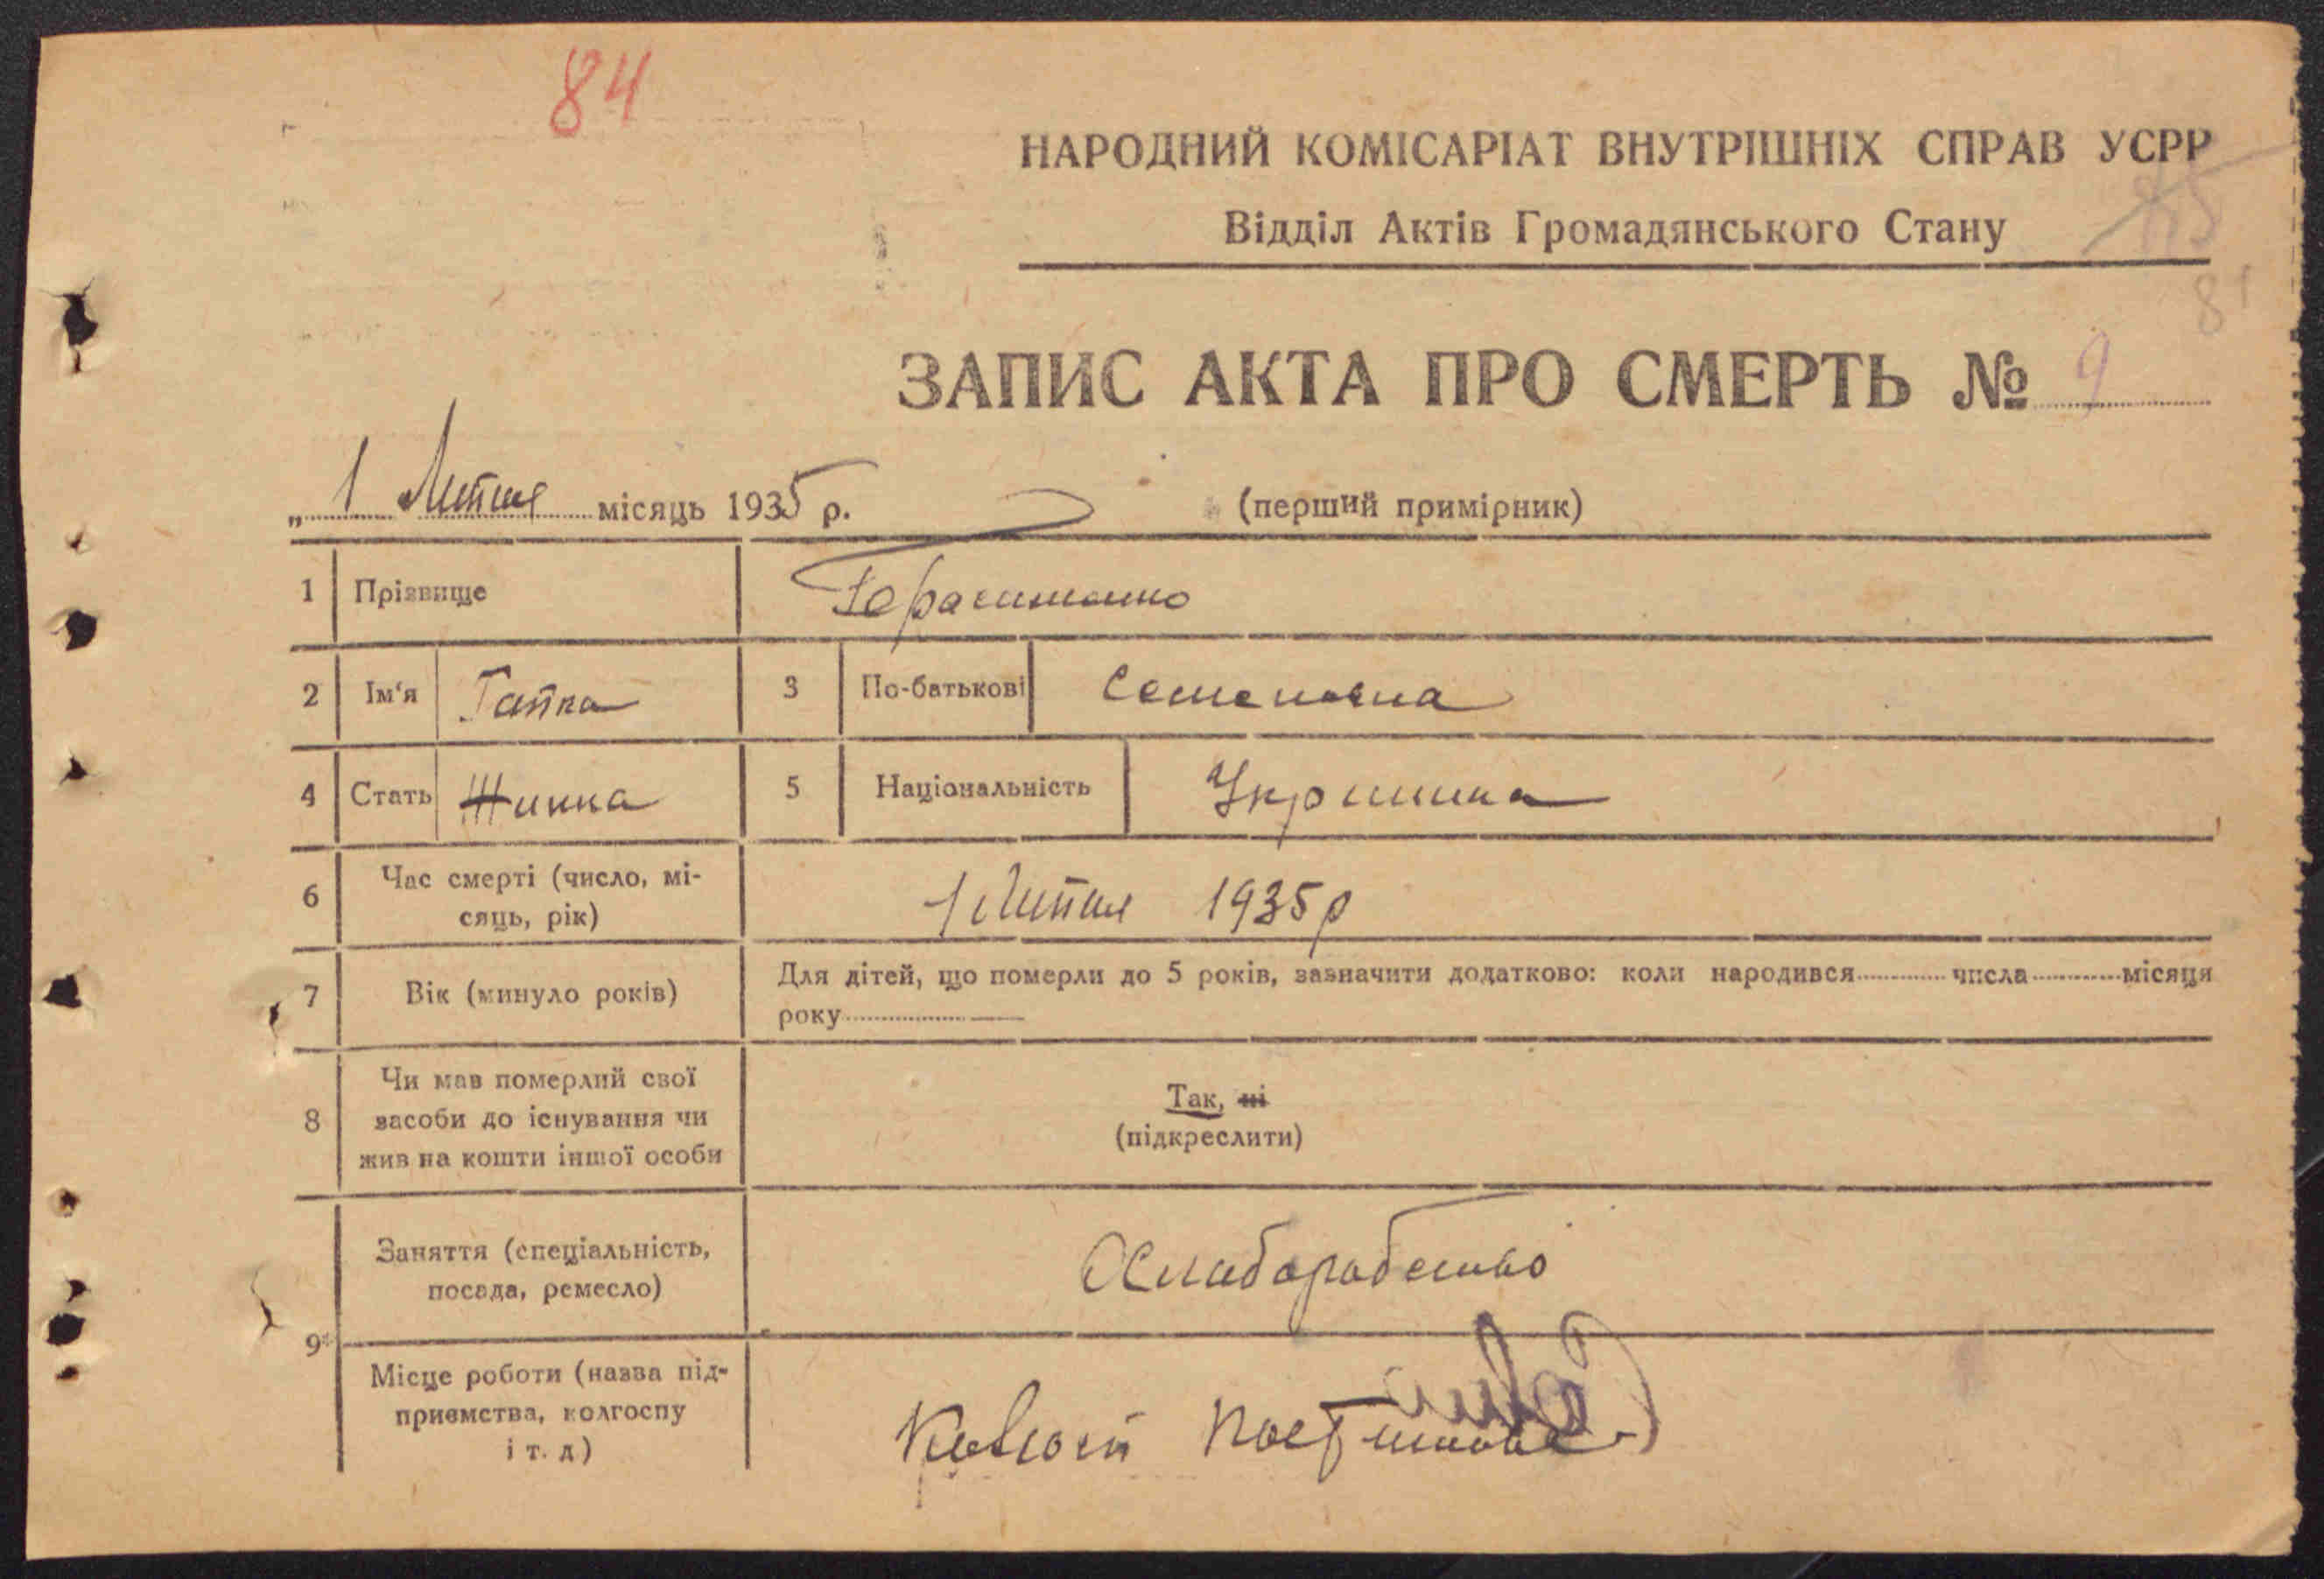 84
НАРОДНИЙ КОМІСАРІАТ ВНУТРІШНІХ СПРАВ УСРР
75
Відділ Актів Громадянського Стану
81
ЗАПИС АКТА ПРО СМЕРТЬ № 9
„ 1 Липня місяць 1935 р. (перший примірник)
1 Прізвище Герасименко
2 Ім'я Гапка 3 По-батькові Семеновна
4 Стать Жинка 5 Національність Укринка
6 Час смерті (число, мі-
сяць, рік) 1 Липня 1935 р
7 Вік (минуло років) Для дітей, що померли до 5 років, зазначити додатково: коли народився числа місяця
року
8 Чи мав померлий свої
засоби до існування чи
жив на кошти іншої особи
Так, ні
(підкреслити)
9 Заняття (спеціальність,
посада, ремесло)
Місце роботи (назва під-
приємства, колгоспу
і т. д)